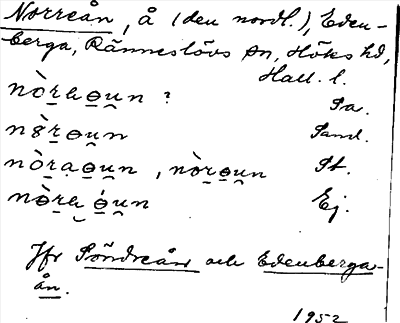 Norreån, å (den nordl.), Eden-
berga, Ränneslövs sn, Höks hd,
Hall. l.
nò̱raɵu̯n ? Sa.
nö̀rɵu̯n Sand.
nòraɵu̯n, nòrɵu̯n St.
nɵ̀ra ɵ́u̯n Ej.
Jfr Söndreån och Edenberga-
ån.
1952